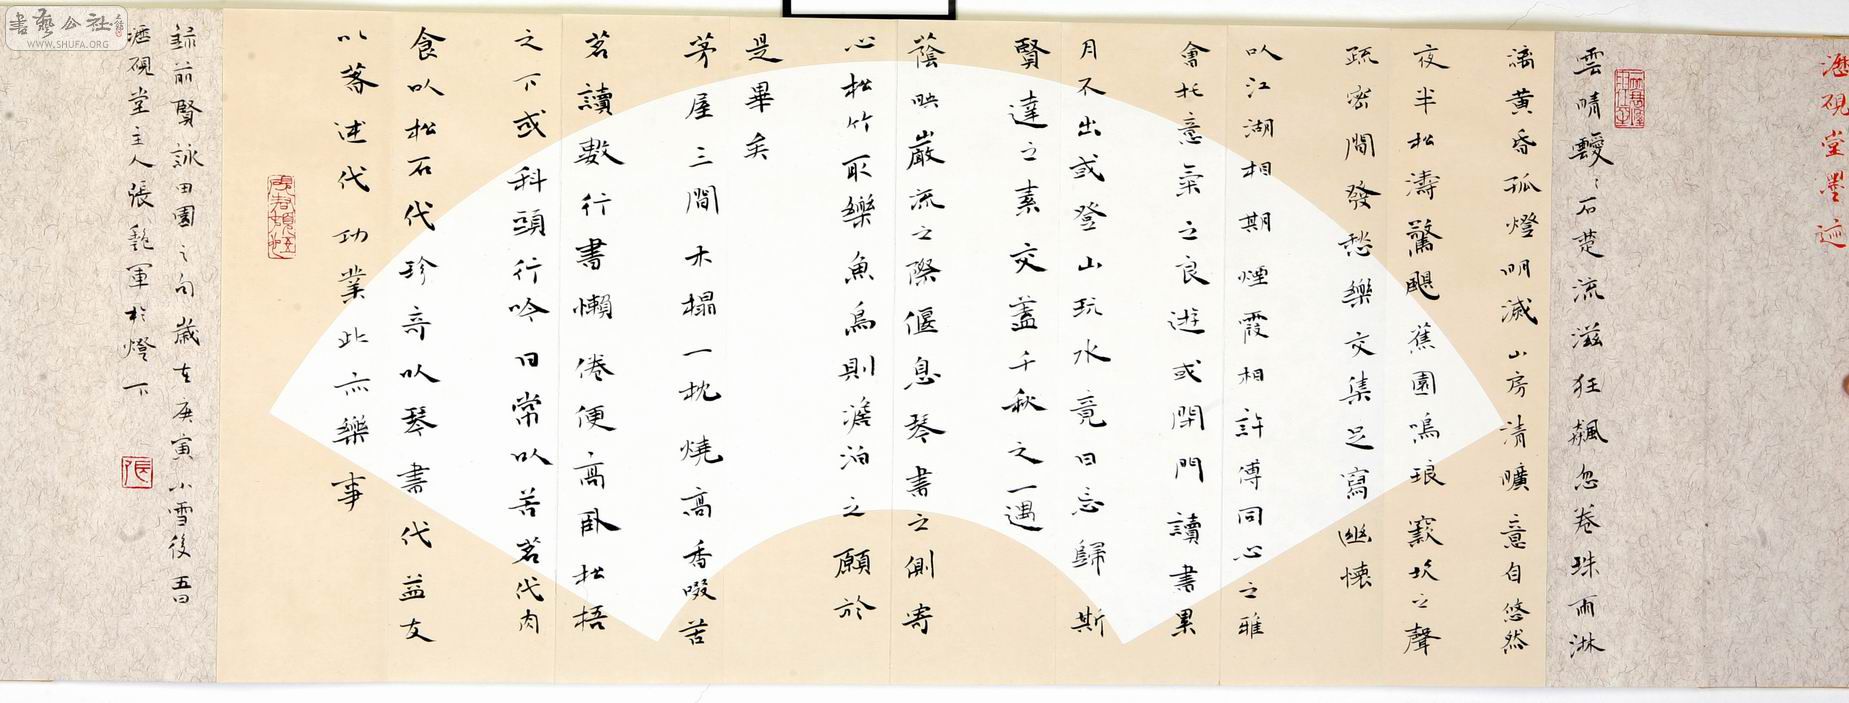 瀝硯堂墨迹
雲晴靉靉石楚流滋狂飆忽卷珠雨淋
漓黃昏孤燈明滅山房清曠意自悠然
夜半松濤驚颶蕉園鳴琅窾坎之聲
疏密間發愁樂交集足寫幽懷
以江湖相期煙霞相許博同心之雅
會托意氣之良遊或閉門讀書累
月不出或登山玩水竟日忘歸斯
賢達之素交蓋千秋之一遇
蔭映巖流之際偃息琴書之側寄
心松竹取樂魚鳥則澹泊之願於
是畢矣
茅屋三間木榻一枕燒高香啜苦
茗讀數行書懶倦便高卧松梧
之下或科頭行吟日常以苦茗代肉
食以松石代珍奇以琴書代益友
以著述代功業此亦樂事
錄前賢詠田園之句歲在庚寅小雪後五日
瀝硯堂主人張艷軍於燈下
張
書藝公社
WWW.SHUFA.ORG